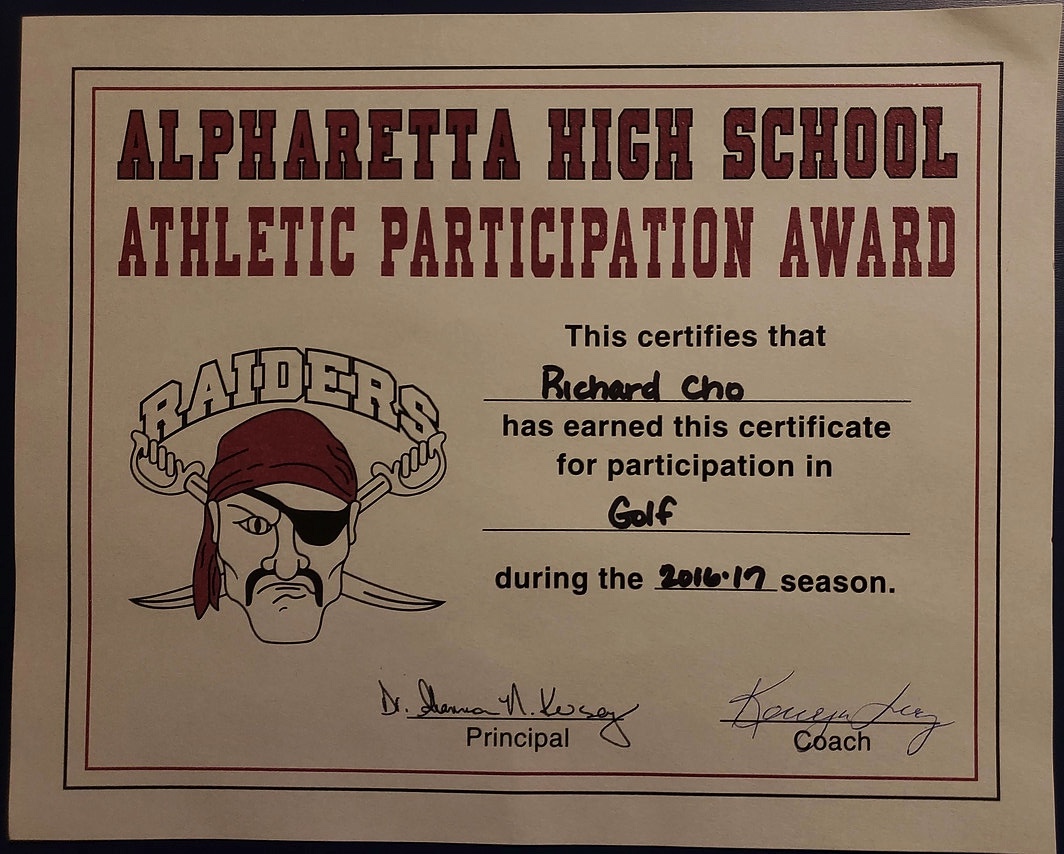 ALPHARETTA HIGH SCHOOL
ATHLETIC PARTICIPATION AWARD
RAIDERS
This certifies that
Richard Cho
has earned this certificate
for participation in
Golf
during the 2016-17 season.
Dr. Shannon N. Kersey
Principal
Coach